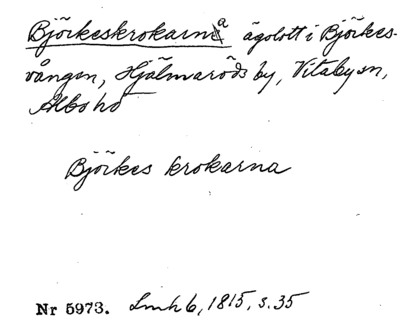 Björkeskrokarna ägolott i Björkes-
vången, Hjälmaröds by, Vitaby sn,
Albo hd
Björkes krokarna
Nr 5973. Lmh 6, 1815, s. 35